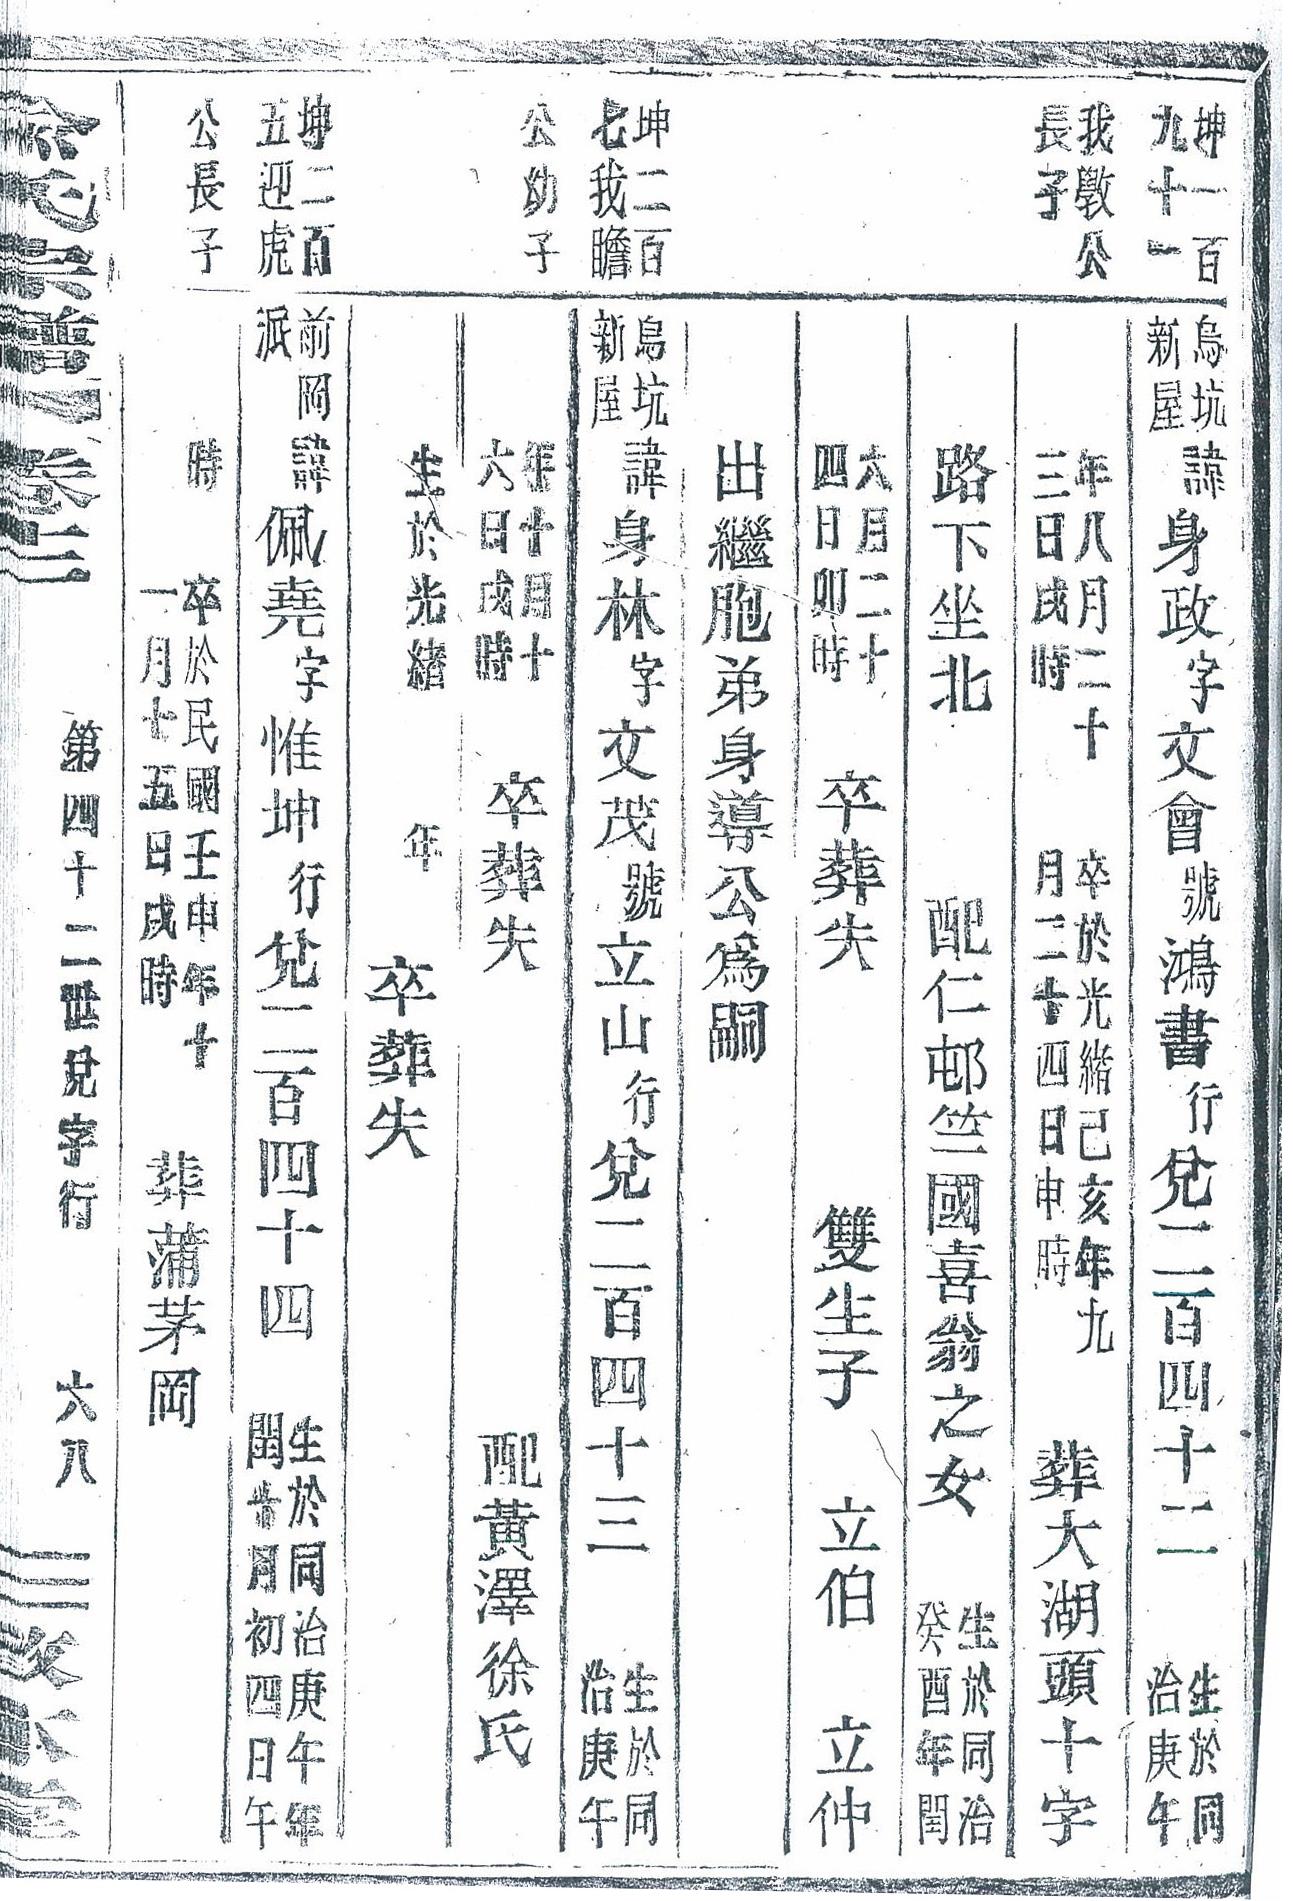 坤一百
九十一
我斆公
長子
烏坑
新屋
諱身政字文會號鴻書行兌二百四十二
生於同
治庚午
年八月二十
三日戌時
卒於光緒己亥年九
月二十四日申時
葬大湖頭十字
路下坐北
配仁邨竺國喜翁之女
生於同治
癸酉年閏
六月二十
四日卯時
卒葬失
雙生子 立伯 立仲
出繼胞弟身導公為嗣
坤二百
七我瞻
公幼子
烏坑
新屋
諱身林字文茂號立山行兌二百四十三
生於同
治庚午
年十月十
六日戌時
卒葬失
配黃澤徐氏
生於光緒 年
卒葬失
坤二百
五迎虎
公長子
前岡
派
諱佩堯字惟坤行兌二百四十四
生於同治庚午年
閏十月初四日午
時
卒於民國壬申年十
一月十五日戌時
葬蒲茅岡
第四十二世兌字行 六八
氏宗譜 卷